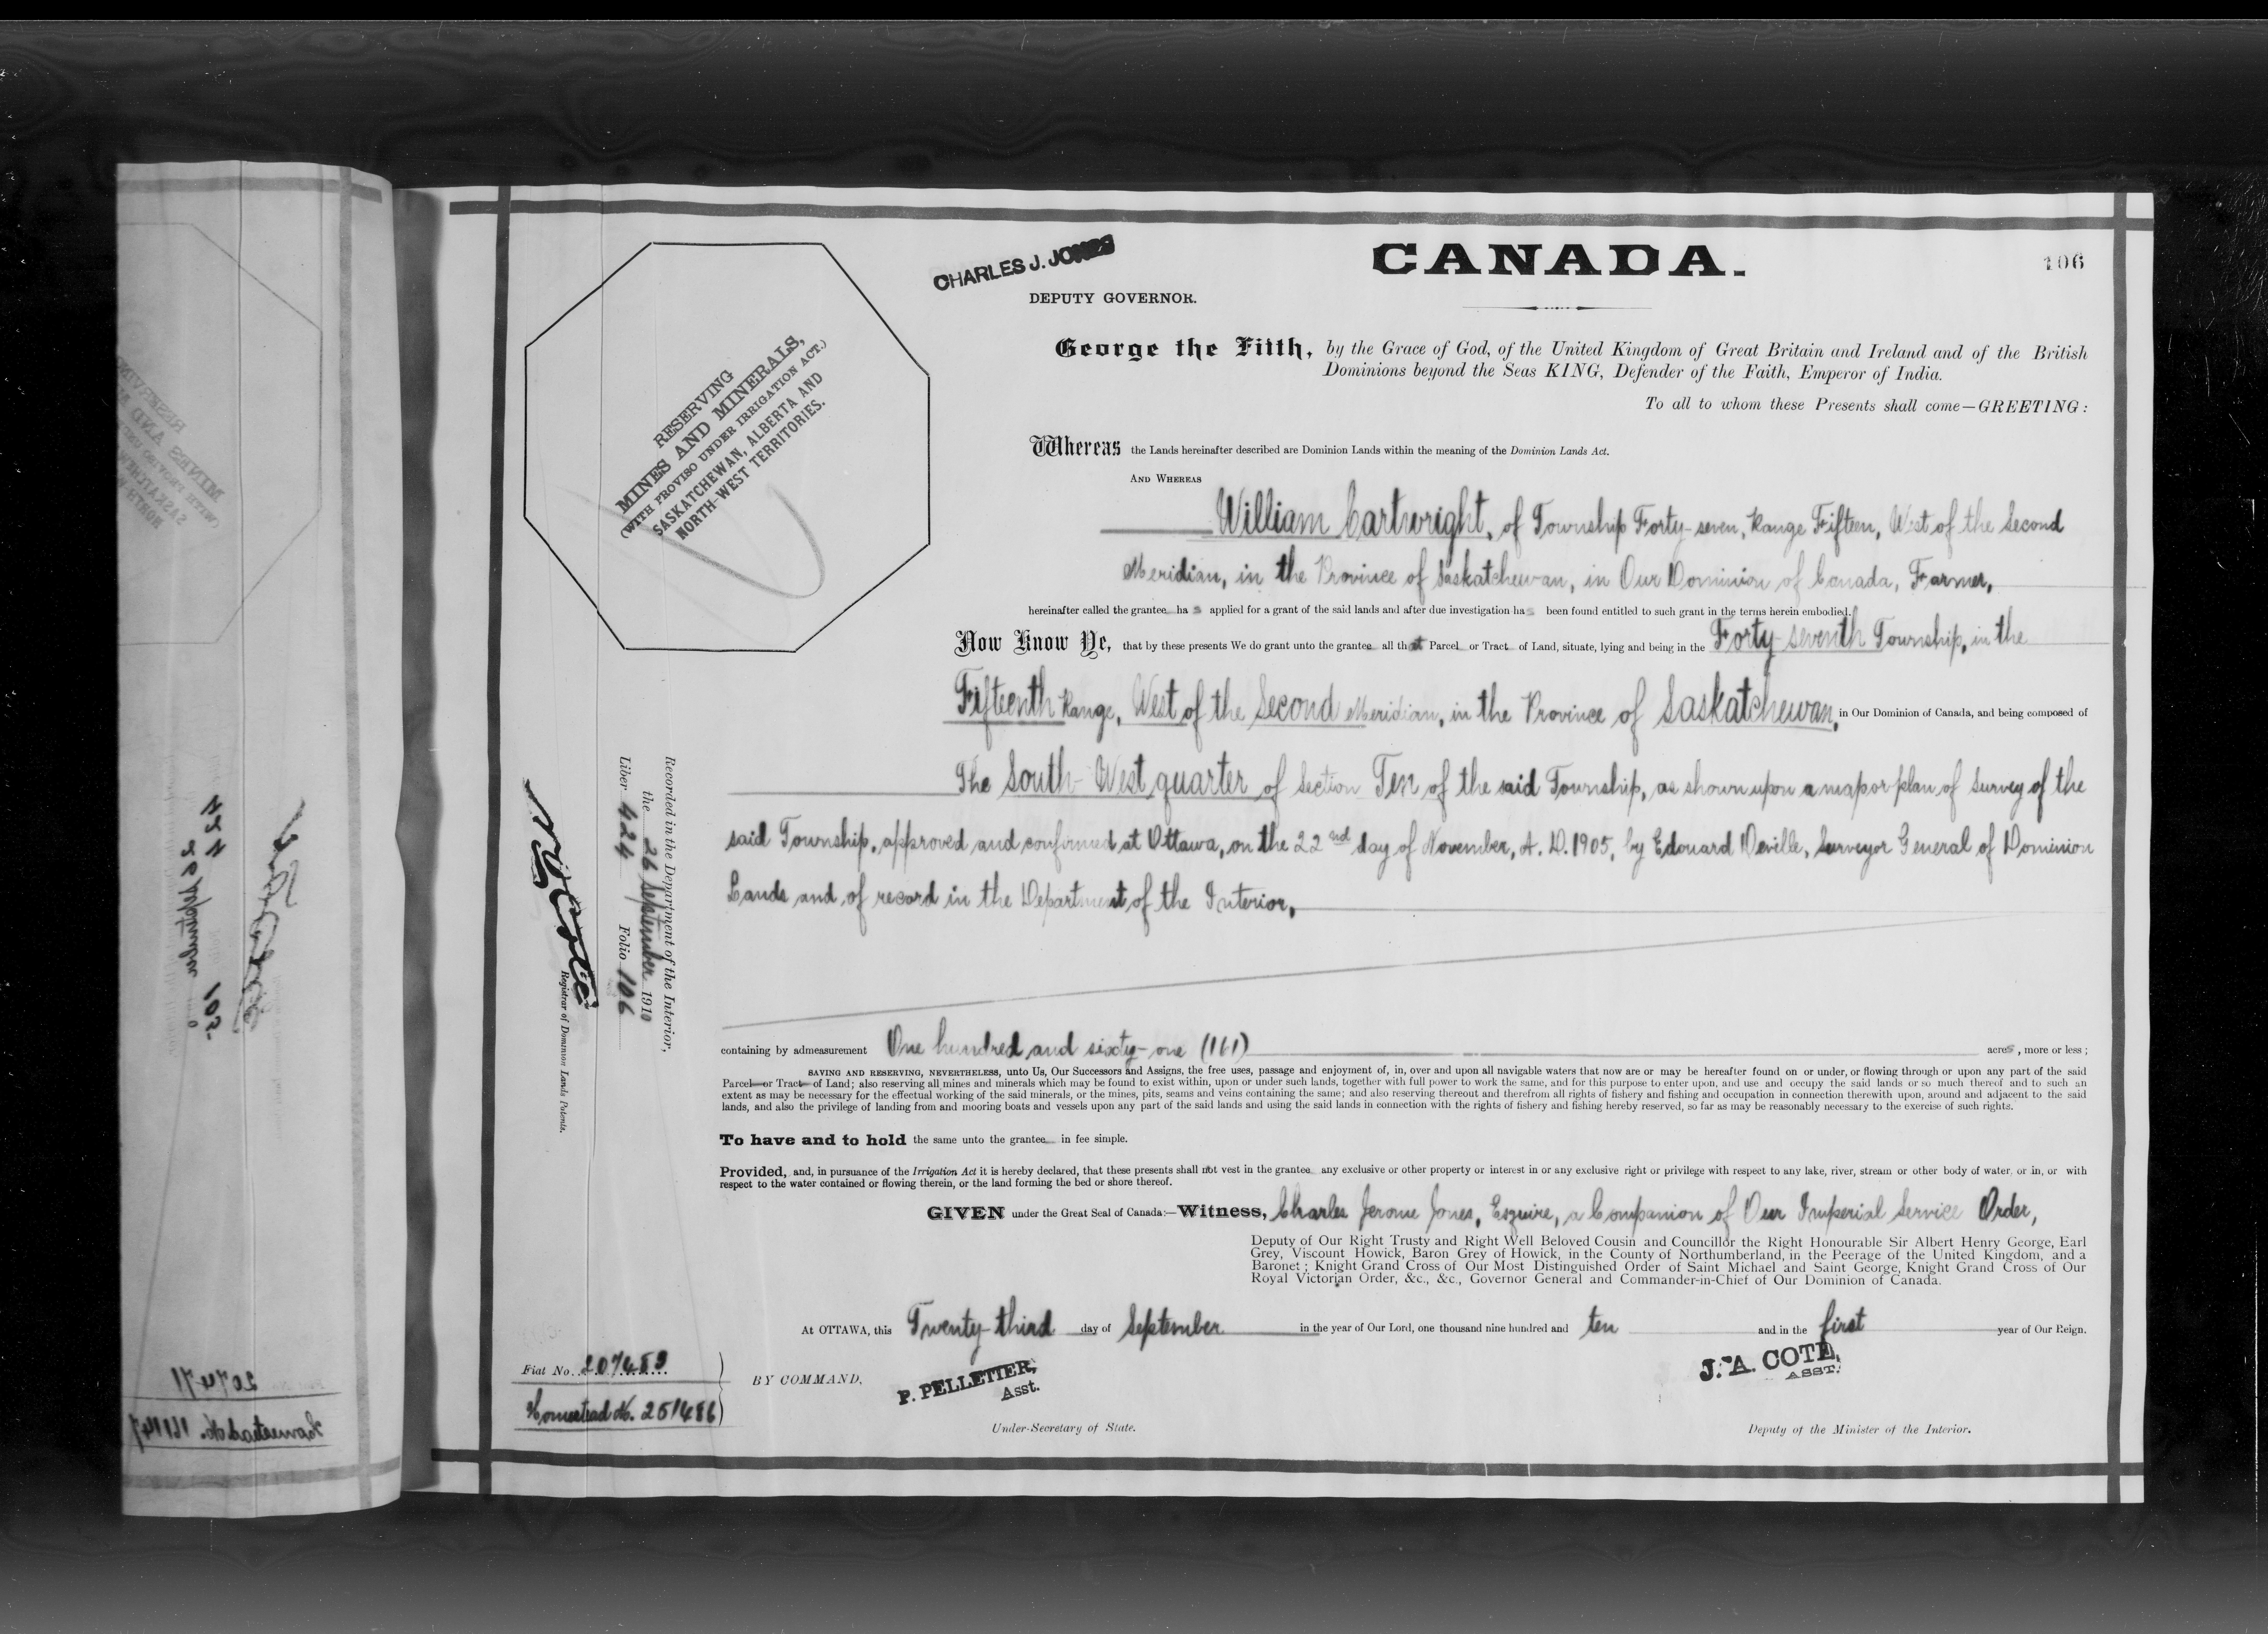 CHARLES J. JONES
CANADA.
106
DEPUTY GOVERNOR.
George the Fifth, by the Grace of God, of the United Kingdom of Great Britain and Ireland and of the British
Dominions beyond the Seas KING, Defender of the Faith, Emperor of India.
To all to whom these Presents shall come—GREETING:
RESERVING
MINES AND MINERALS,
(WITH PROVISO UNDER IRRIGATION ACT.)
SASKATCHEWAN, ALBERTA AND
NORTH-WEST TERRITORIES.
Whereas the Lands hereinafter described are Dominion Lands within the meaning of the Dominion Lands Act.
AND WHEREAS
William Cartwright, of Township Forty-seven, Range Fifteen, West of the Second
Meridian, in the Province of Saskatchewan, in Our Dominion of Canada, Farmer,
hereinafter called the grantee has applied for a grant of the said lands and after due investigation has been found entitled to such grant in the terms herein embodied.
Now Know Ye, that by these presents We do grant unto the grantee all that Parcel or Tract of Land, situate, lying and being in the Forty-seventh Township, in the
Fifteenth Range, West of the Second Meridian, in the Province of Saskatchewan, in Our Dominion of Canada, and being composed of
The South-West quarter of Section Ten of the said Township, as shown upon a map or plan of Survey of the
said Township, approved and confirmed at Ottawa, on the 22nd day of November, A. D. 1905, by Edouard Deville, Surveyor General of Dominion
Lands and of record in the Department of the Interior,
containing by admeasurement One hundred and sixty-one (161) acres, more or less;
SAVING AND RESERVING, NEVERTHELESS, unto Us, Our Successors and Assigns, the free uses, passage and enjoyment of, in, over and upon all navigable waters that now are or may be hereafter found on or under, or flowing through or upon any part of the said
Parcel or Tract of Land; also reserving all mines and minerals which may be found to exist within, upon or under such lands, together with full power to work the same, and for this purpose to enter upon, and use and occupy the said lands or so much thereof and to such an
extent as may be necessary for the effectual working of the said minerals, or the mines, pits, seams and veins containing the same; and also reserving thereout and therefrom all rights of fishery and fishing and occupation in connection therewith upon, around and adjacent to the said
lands, and also the privilege of landing from and mooring boats and vessels upon any part of the said lands and using the said lands in connection with the rights of fishery and fishing hereby reserved, so far as may be reasonably necessary to the exercise of such rights.
To have and to hold the same unto the grantee in fee simple.
Provided, and, in pursuance of the Irrigation Act it is hereby declared, that these presents shall not vest in the grantee any exclusive or other property or interest in or any exclusive right or privilege with respect to any lake, river, stream or other body of water, or in, or with
respect to the water contained or flowing therein, or the land forming the bed or shore thereof.
GIVEN under the Great Seal of Canada:—Witness, Charles Jerome Jones, Esquire, a Companion of Our Imperial Service Order,
Deputy of Our Right Trusty and Right Well Beloved Cousin and Councillor the Right Honourable Sir Albert Henry George, Earl
Grey, Viscount Howick, Baron Grey of Howick, in the County of Northumberland, in the Peerage of the United Kingdom, and a
Baronet; Knight Grand Cross of Our Most Distinguished Order of Saint Michael and Saint George, Knight Grand Cross of Our
Royal Victorian Order, &c., &c., Governor General and Commander-in-Chief of Our Dominion of Canada.
At OTTAWA, this Twenty-third day of September in the year of Our Lord, one thousand nine hundred and ten and in the first year of Our Reign.
BY COMMAND,
P. PELLETIER,
Asst.
Under-Secretary of State.
J. A. COTE,
ASST.
Deputy of the Minister of the Interior.
Recorded in the Department of the Interior,
the 26 September 1910
Liber 424 Folio 106
Registrar of Dominion Lands Patents.
Fiat No. 207489
Homestead No. 251486
207471
Homestead No. 161147